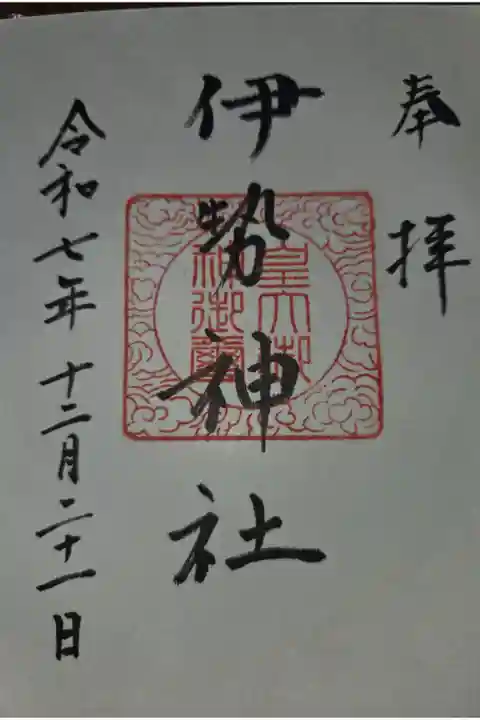 奉拝
伊勢神社
皇大御
神御霊
令和七年十二月二十一日